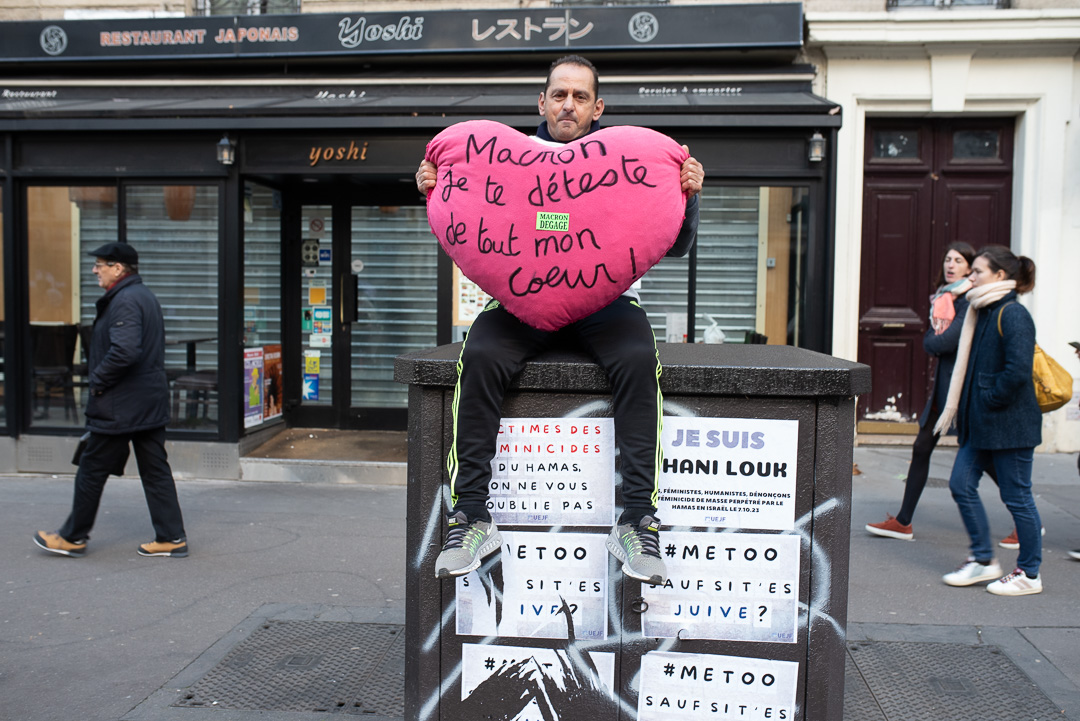 RESTAURANT JAPONAIS
Yoshi
レストラン
Restaurant
Yoshi
Service à emporter
yoshi
Macron
je te déteste
MACRON
DEGAGE
de tout mon
coeur !
CTIMES DES
MINICIDES
DU HAMAS,
ON NE VOUS
OUBLIE PAS
UEJF
JE SUIS
HANI LOUK
S, FÉMINISTES, HUMANISTES, DÉNONÇONS
FÉMINICIDE DE MASSE PERPÉTRÉ PAR LE
HAMAS EN ISRAËL LE 7.10.23
UEJF
ETOO
S SIT'ES
IVE?
UEJF
#METOO
SAUF SIT'ES
JUIVE?
UEJF
#METOO
SAUF SIT'ES